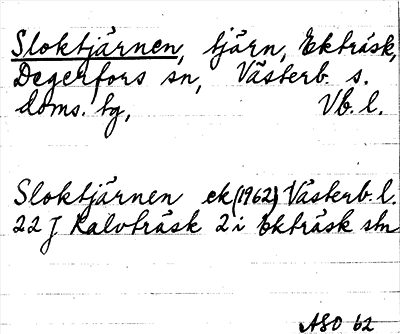 Sloktjärnen, tjärn, Ekträsk,
Degerfors sn, Västerb. s.
doms. tg, Vb. l.
Sloktjärnen ek (1962) Västerb. l.
22 J Kalvträsk 2 i Ekträsk stn
ASO 62